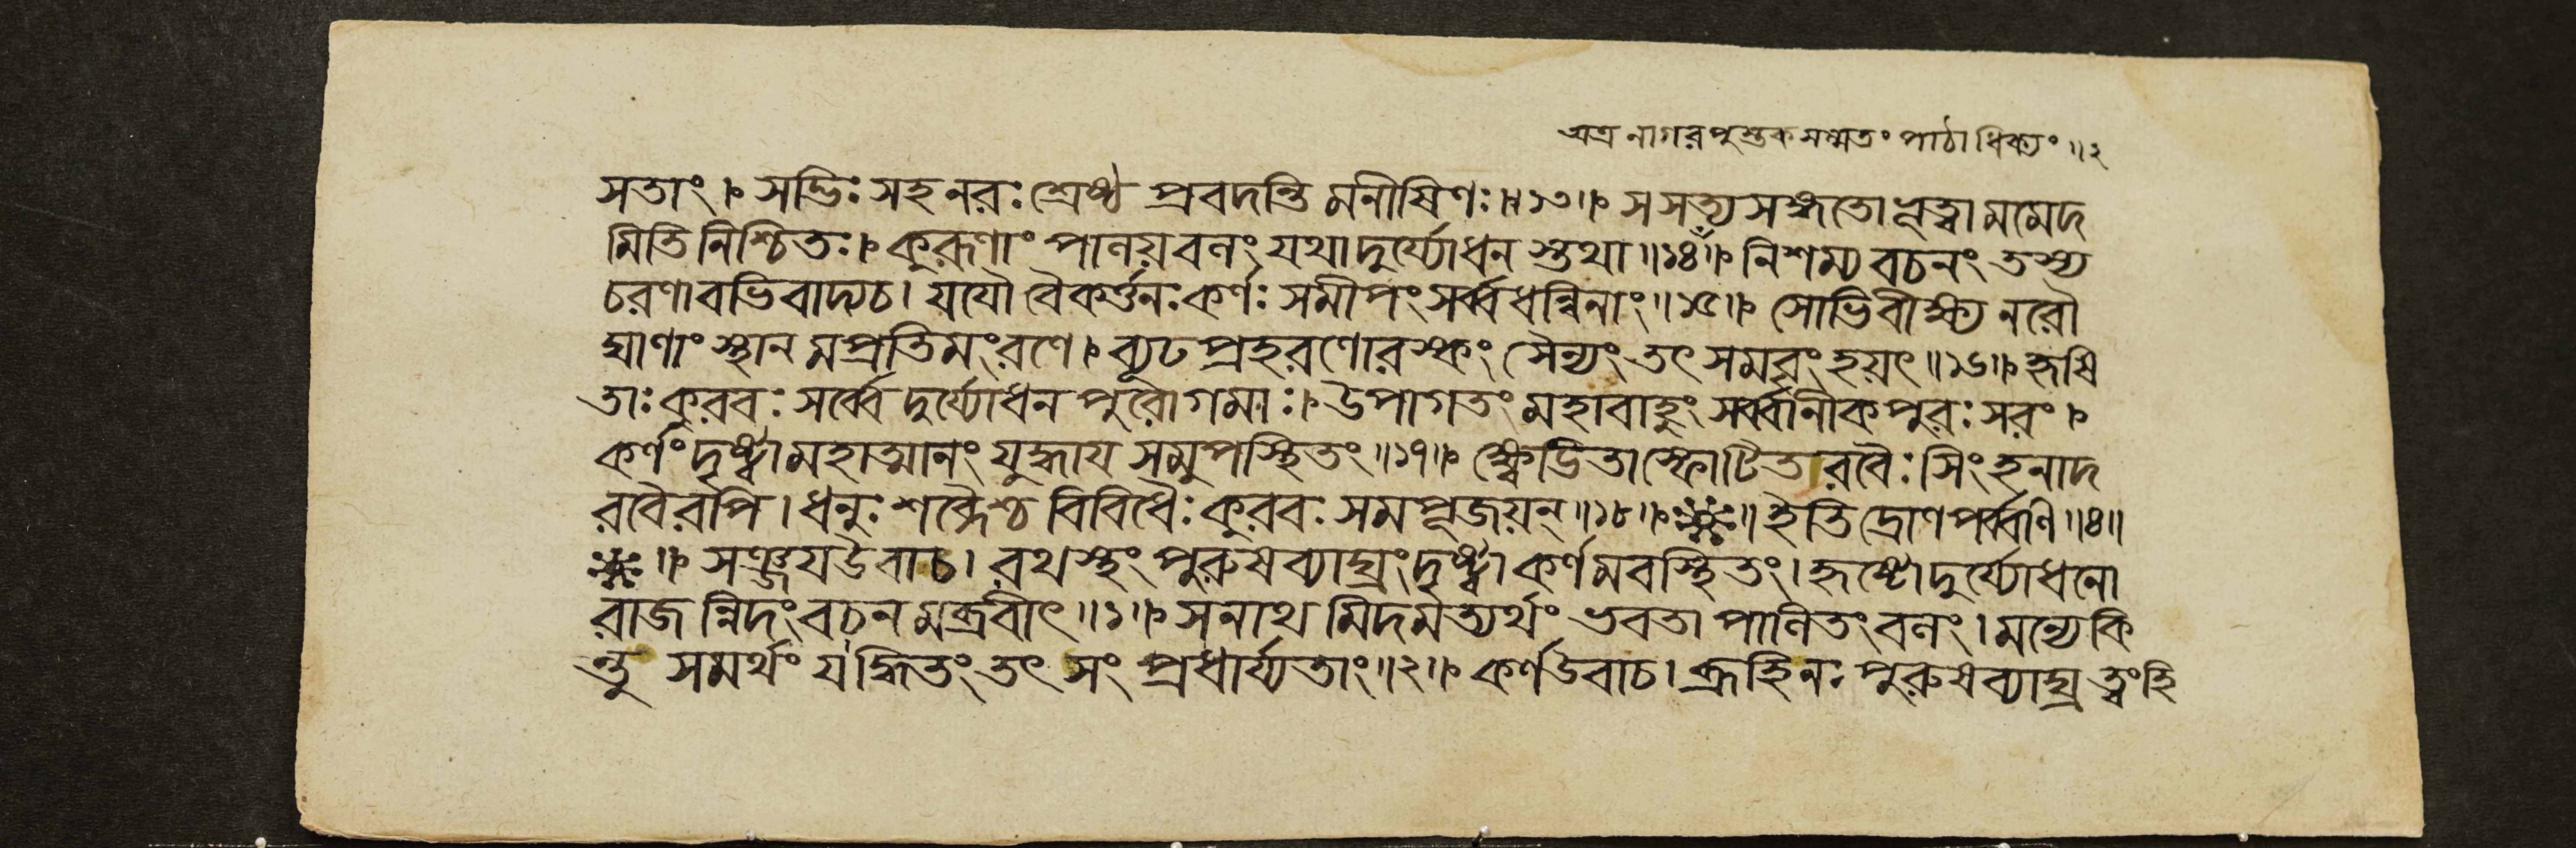 অত্র নাগর পুস্তক সম্মতং পাঠাধিক্যং ॥২
সতাং। সদ্ভিঃ সহ নরঃ শ্রেষ্ঠ প্রবদন্তি মনীষিণঃ ॥১৩॥ স সত্য সঙ্গতো ভূত্বা মমেদ
মিতি নিশ্চিতঃ। কুরূণাং পালয় বলং যথা দুর্য্যোধন স্তথা ॥১৪॥ নিশম্য বচনং তস্য
চরণাবভিবাদ্য চ। যযৌ বৈকর্ত্তনঃ কর্ণঃ সমীপং সর্ব্বধন্বিনাং ॥১৫॥ সোভিবীক্ষ্য নরৌ
ঘাণাং স্থান মপ্রতিমং রণে। ব্যূঢ প্রহরণোরস্কং সৈন্যং তৎ সমবৃংহয়ৎ ॥১৬॥ হৃষি
তাঃ কুরবঃ সর্ব্বে দুর্য্যোধন পুরোগমাঃ। উপাগতং মহাবাহুং সর্ব্বানীক পুরঃসরং।
কর্ণং দৃষ্ট্বা মহাত্মানং যুদ্ধায় সমুপস্থিতং ॥১৭॥ ক্ষ্বেডিতাস্ফোটিতারবৈঃ সিংহনাদ
রবৈরপি। ধনুঃ শব্দৈশ্চ বিবিধৈঃ কুরবঃ সমপূজয়ন্ ॥১৮॥ ॥ ইতি দ্রোণপর্ব্বণি ॥৪॥
॥ সঞ্জয় উবাচ। রথস্থং পুরুষব্যাঘ্রং দৃষ্ট্বা কর্ণমবস্থিতং। হৃষ্টো দুর্য্যোধনো
রাজন্নিদং বচন মব্রবীৎ ॥১॥ সনাথ মিদমত্যর্থং ভবতা পালিতং বলং। মন্যে কি
ন্তু সমর্থং যদ্ধিতং তৎ সং প্রধার্য্যতাং ॥২॥ কর্ণ উবাচ। ব্রূহি নঃ পুরুষব্যাঘ্র ত্বং হি